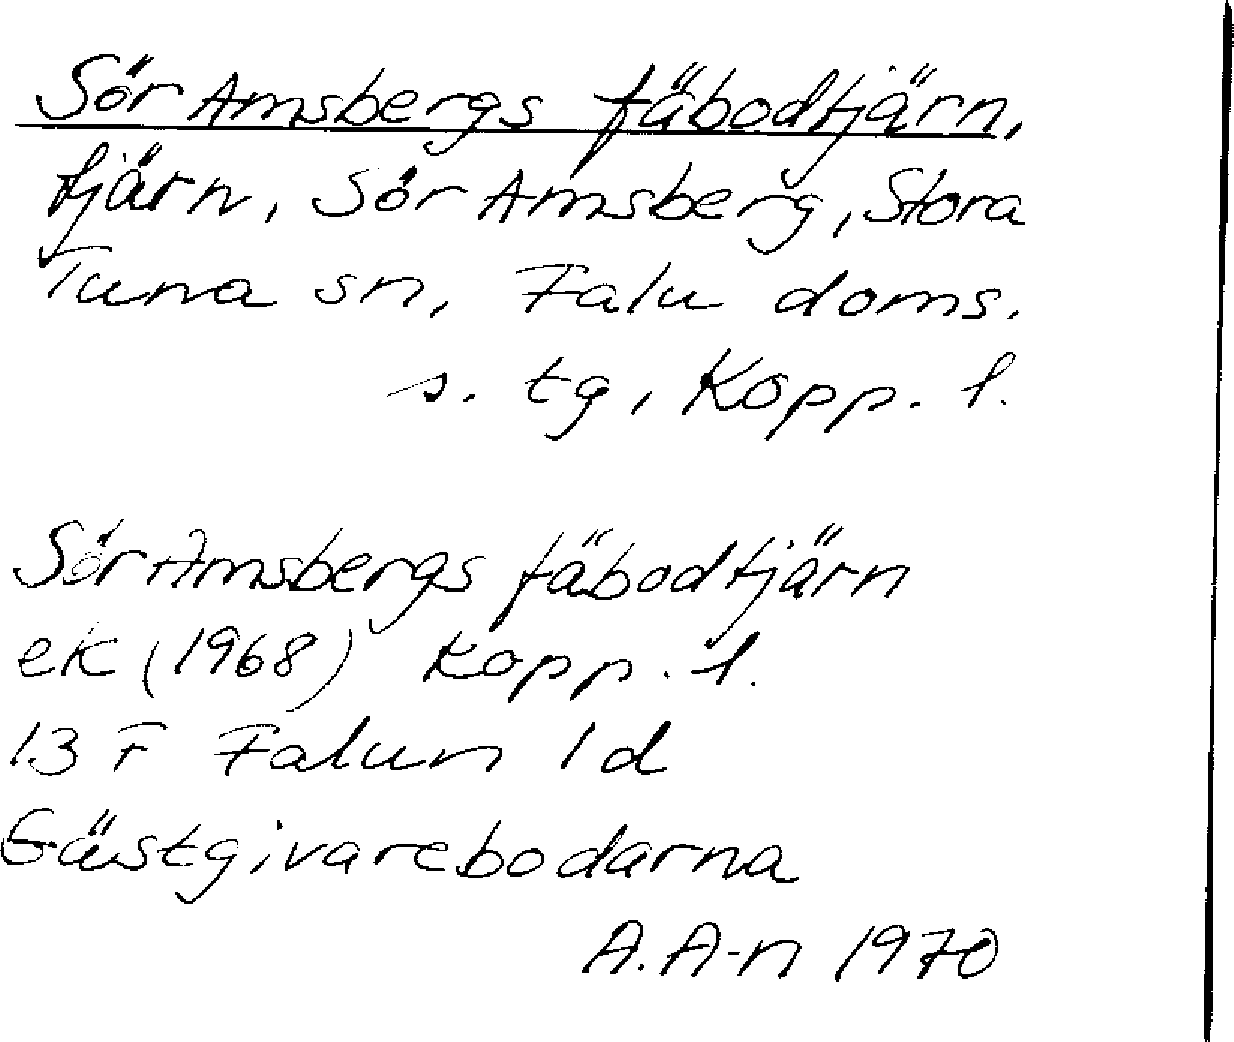 Sör Amsbergs fäbodtjärn,
tjärn, Sör Amsberg, Stora
Tuna sn, Falu doms.
s. tg, Kopp. l.
Sör Amsbergs fäbodtjärn
ek (1968) Kopp. l.
13 F Falun 1d
Gästgivarebodarna
A. A-n 1970